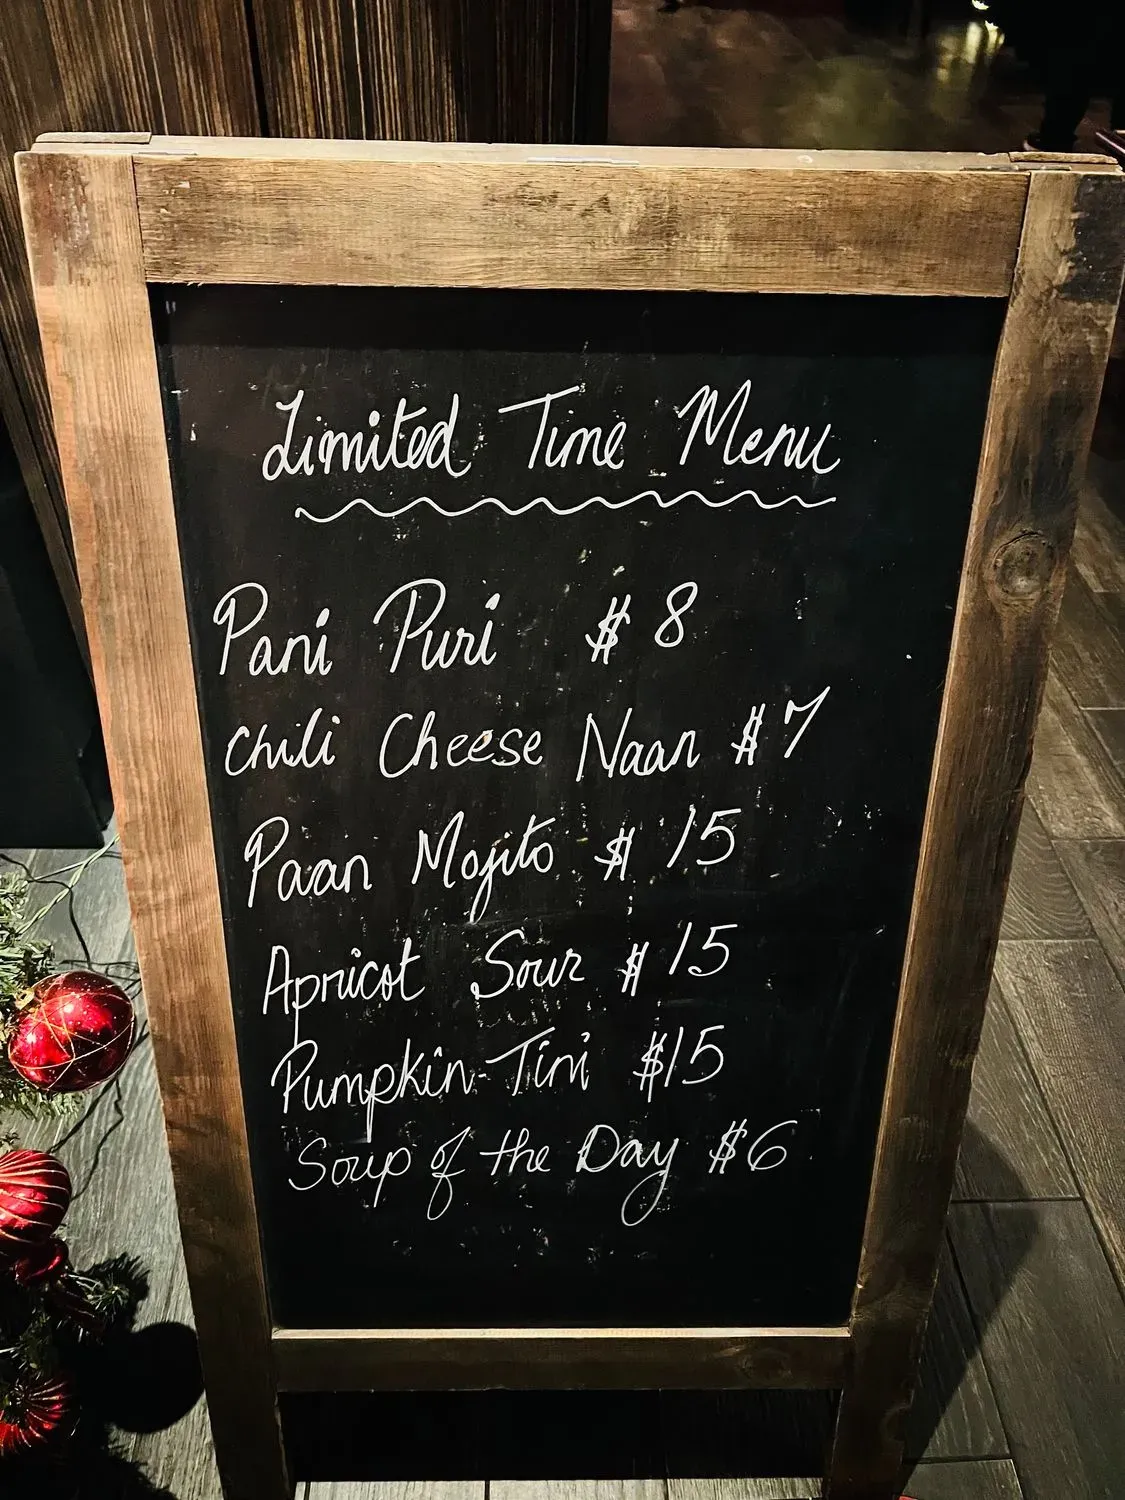 Limited Time Menu
Pani Puri $8
Chili Cheese Naan $7
Paan Mojito $15
Apricot Sour $15
Pumpkin-Tini $15
Soup of the Day $6